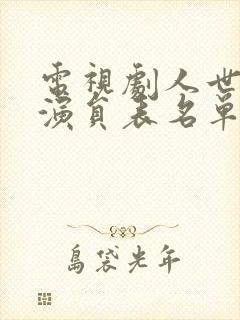 電視劇人世
演員表名單
島袋光年